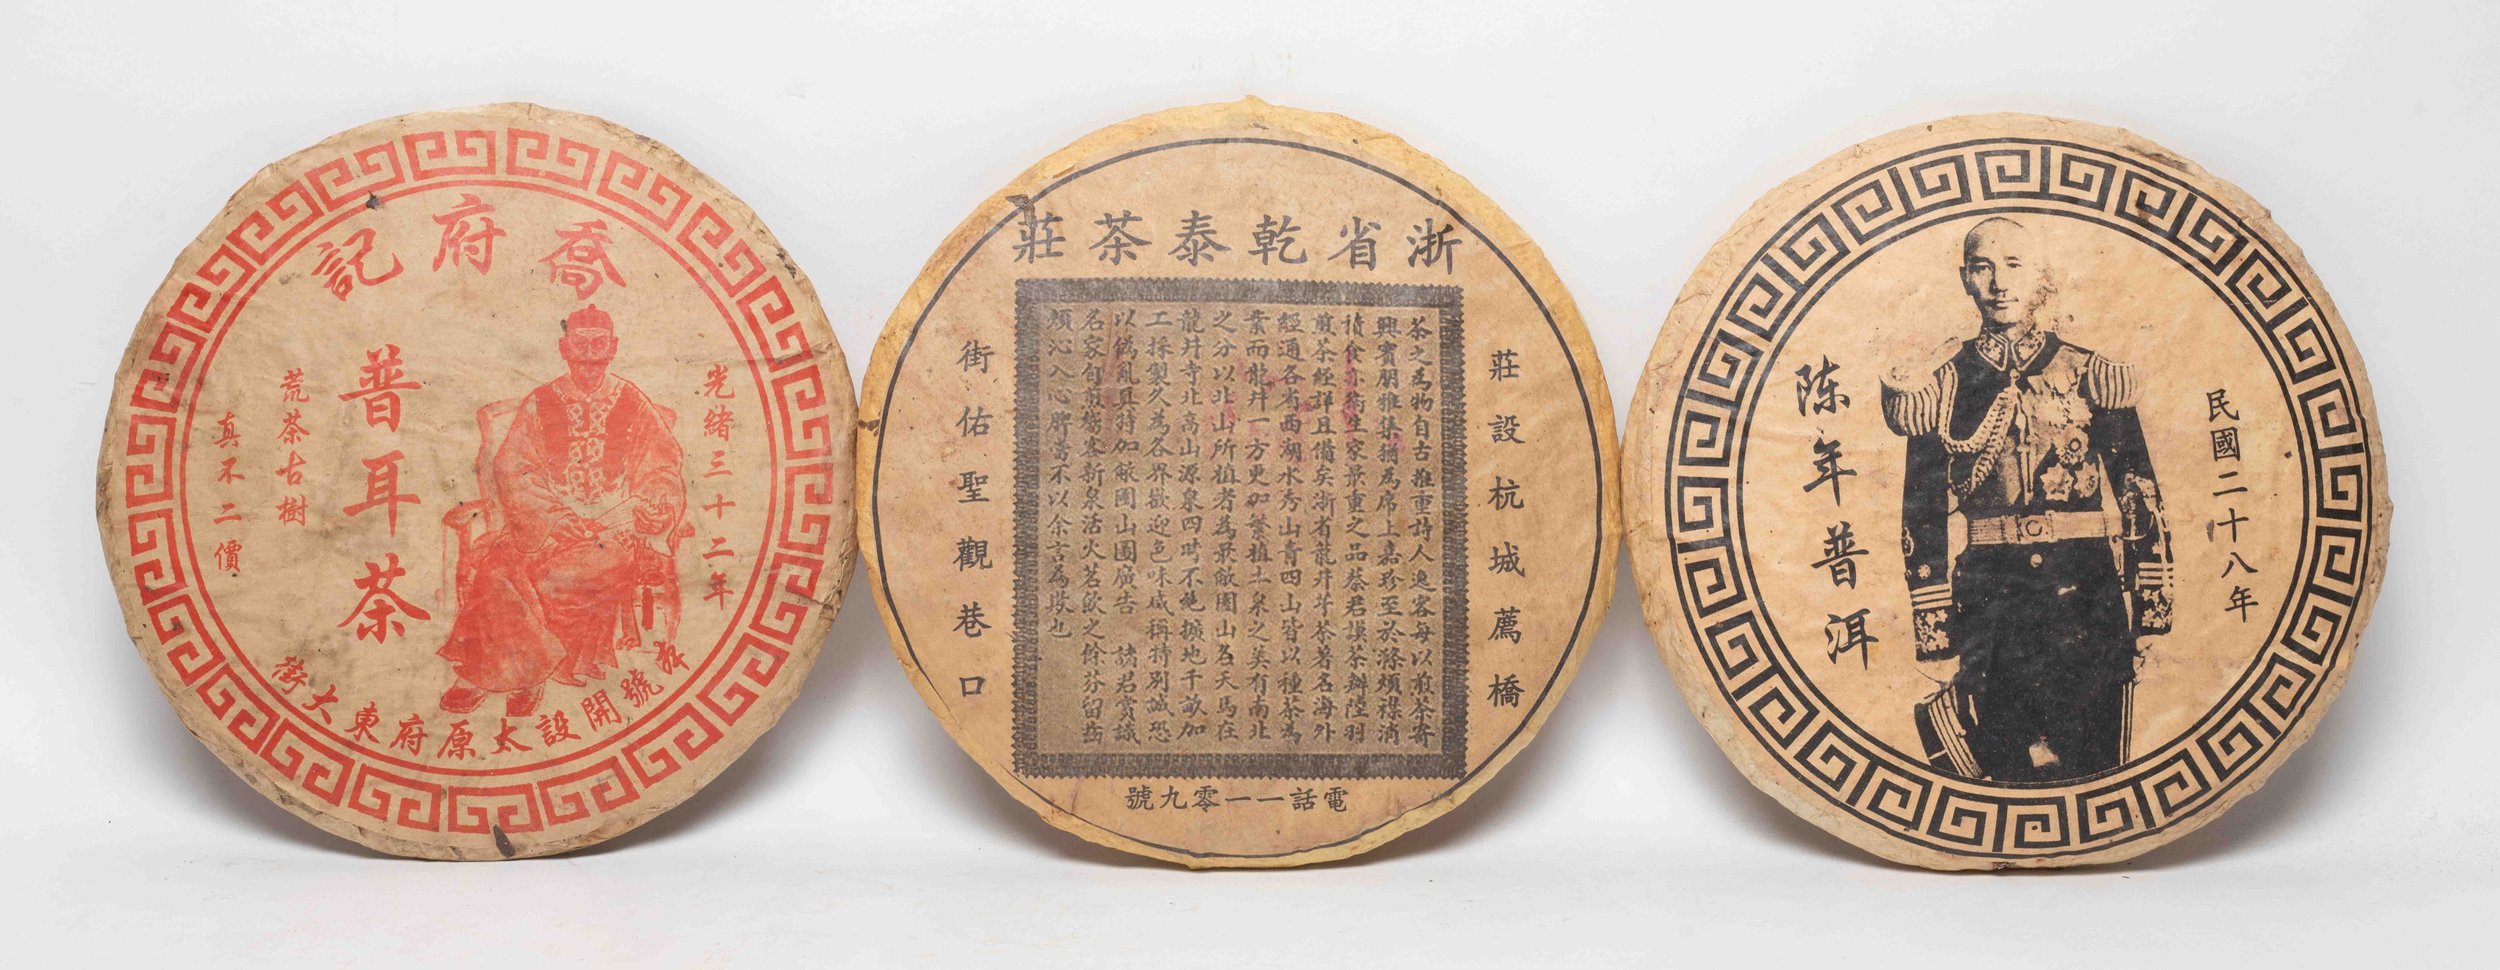 喬府記
光緒三十二年
普耳茶
荒茶古樹
真不二價
本號開設太原府東大街
浙省乾泰茶莊
莊設杭城薦橋
茶之為物自古推重詩人逸客每以煎茶寄
興賓朋雅集猶為席上嘉珍至於滌煩消
積食亦衛生家最重之品蔡君謨茶辦陸羽
煎茶經詳且備矣浙省龍井芽茶著名海外
經通各省西湖水秀山青四山皆以種茶為
業而龍井一方更加繁植土泉之美有南北
之分以北山所植者為最敝園山名天馬在
龍井寺北高山源泉四時不絕擴地千畝加
工採製久為各界歡迎色味咸稱特別誠恐
以偽亂真特加敝園山園廣告 諸君賞識
名家自煎新泉活火茗飲之餘芬留齒
頰沁入心脾當不以余言為也
街佑聖觀巷口
電話一一零九號
民國二十八年
陈年普洱